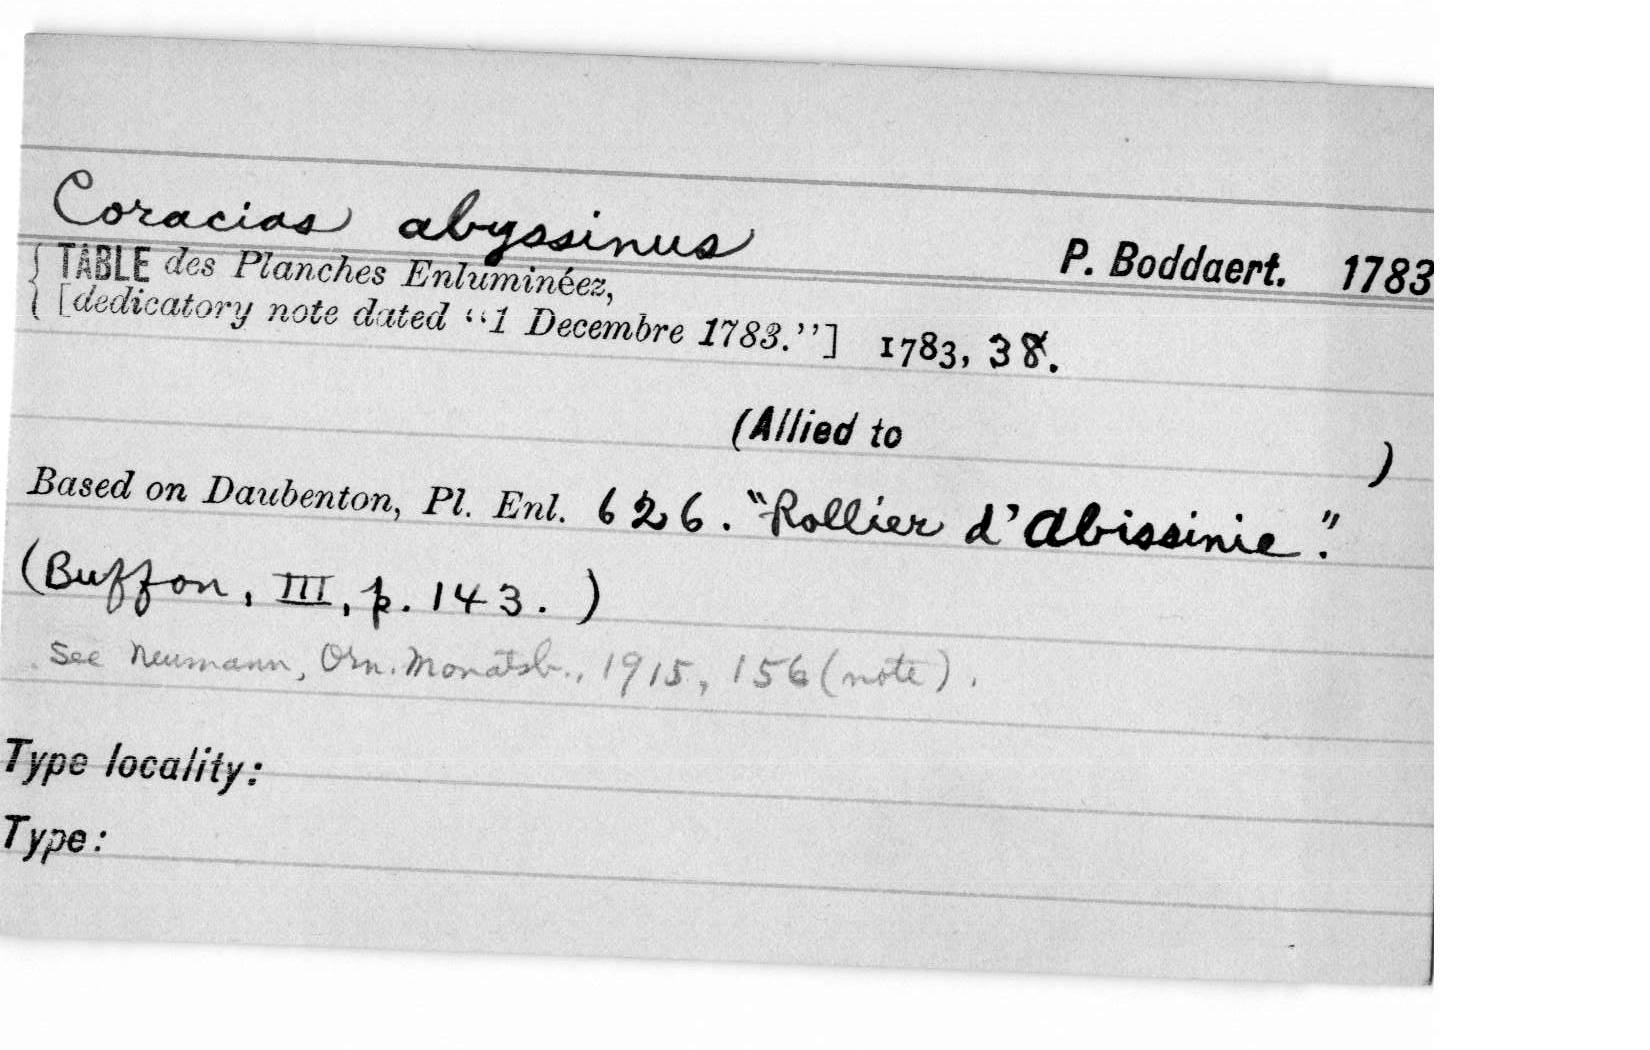 Coracias abyssinus
P. Boddaert. 1783
TABLE des Planches Enluminéez,
[dedicatory note dated “1 Decembre 1783.”] 1783, 38.
(Allied to )
Based on Daubenton, Pl. Enl. 626. "Rollier d'Abissinie".
(Buffon, III, p. 143.)
See Neumann, Orn. Monatsb., 1915, 156 (note).
Type locality:
Type: